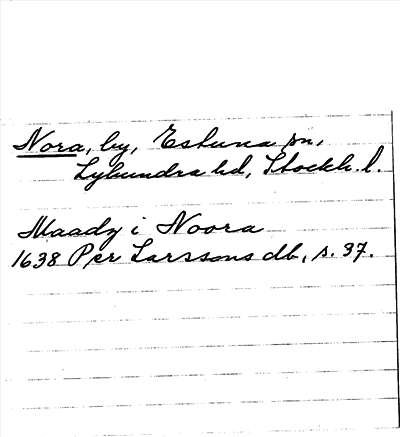 Nora, by, Estuna sn,
Lyhundra hd, Stockh. l.
Maady i Noora
1638 Per Larssons db, s. 37.